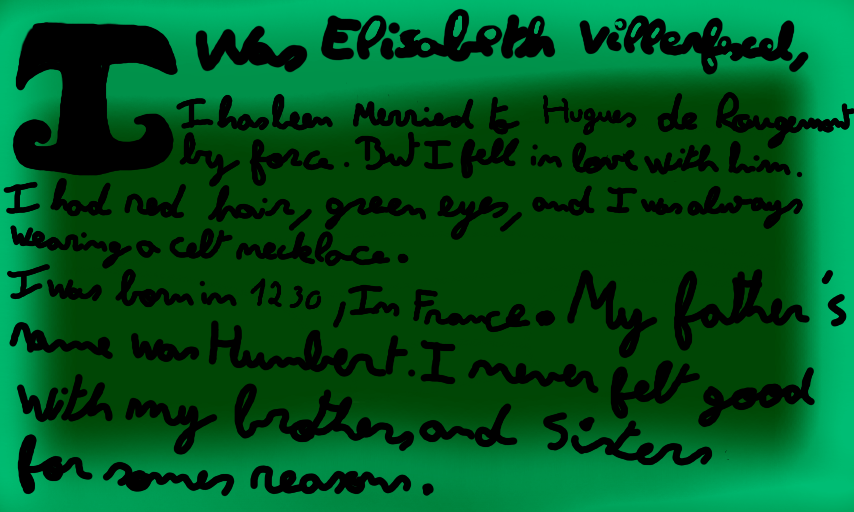 I Was Elisabeth Villerfoxel,
I has been Merried to Hugues de Rougemont
by force. But I fell in love with him.
I had red hair, green eyes, and I was always
wearing a celt necklace.
I was born in 1230, In France. My father's
name was Humbert. I never felt good
with my brother, and Sisters
for somes reasons.